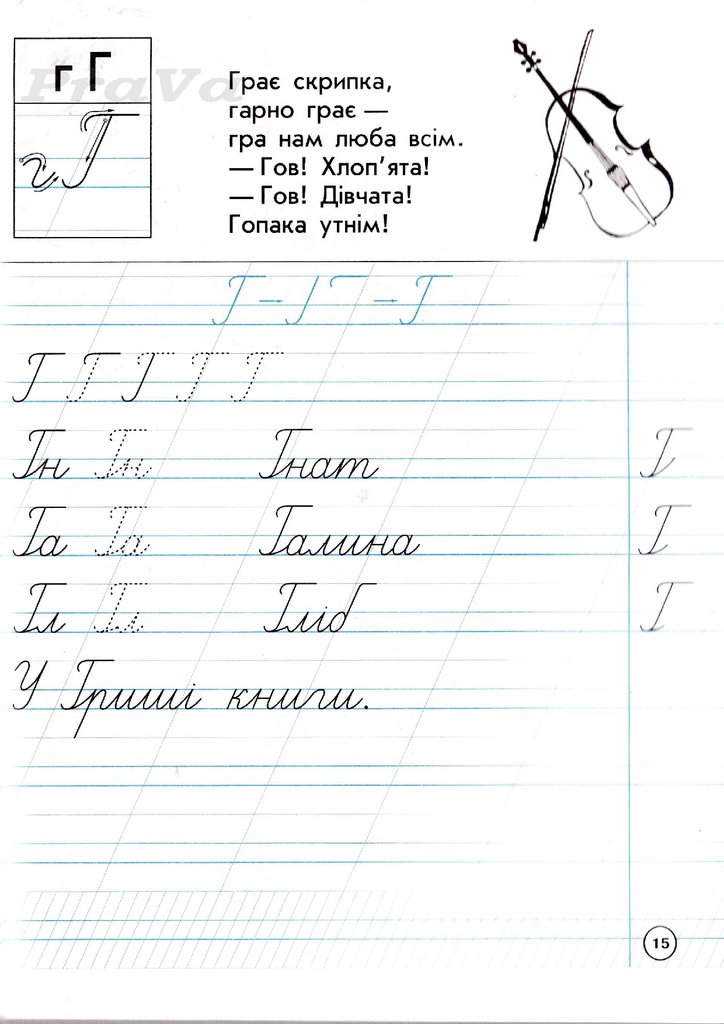 г Г
PraVa
г Г
Грає скрипка,
гарно грає —
гра нам люба всім.
— Гов! Хлоп’ята!
— Гов! Дівчата!
Гопака утнім!
Г → Г → Г
Г Г Г Г Г
Гн Гн Гнат Г
Га Га Галина Г
Гл Гл Гліб Г
У Гриші книги.
15